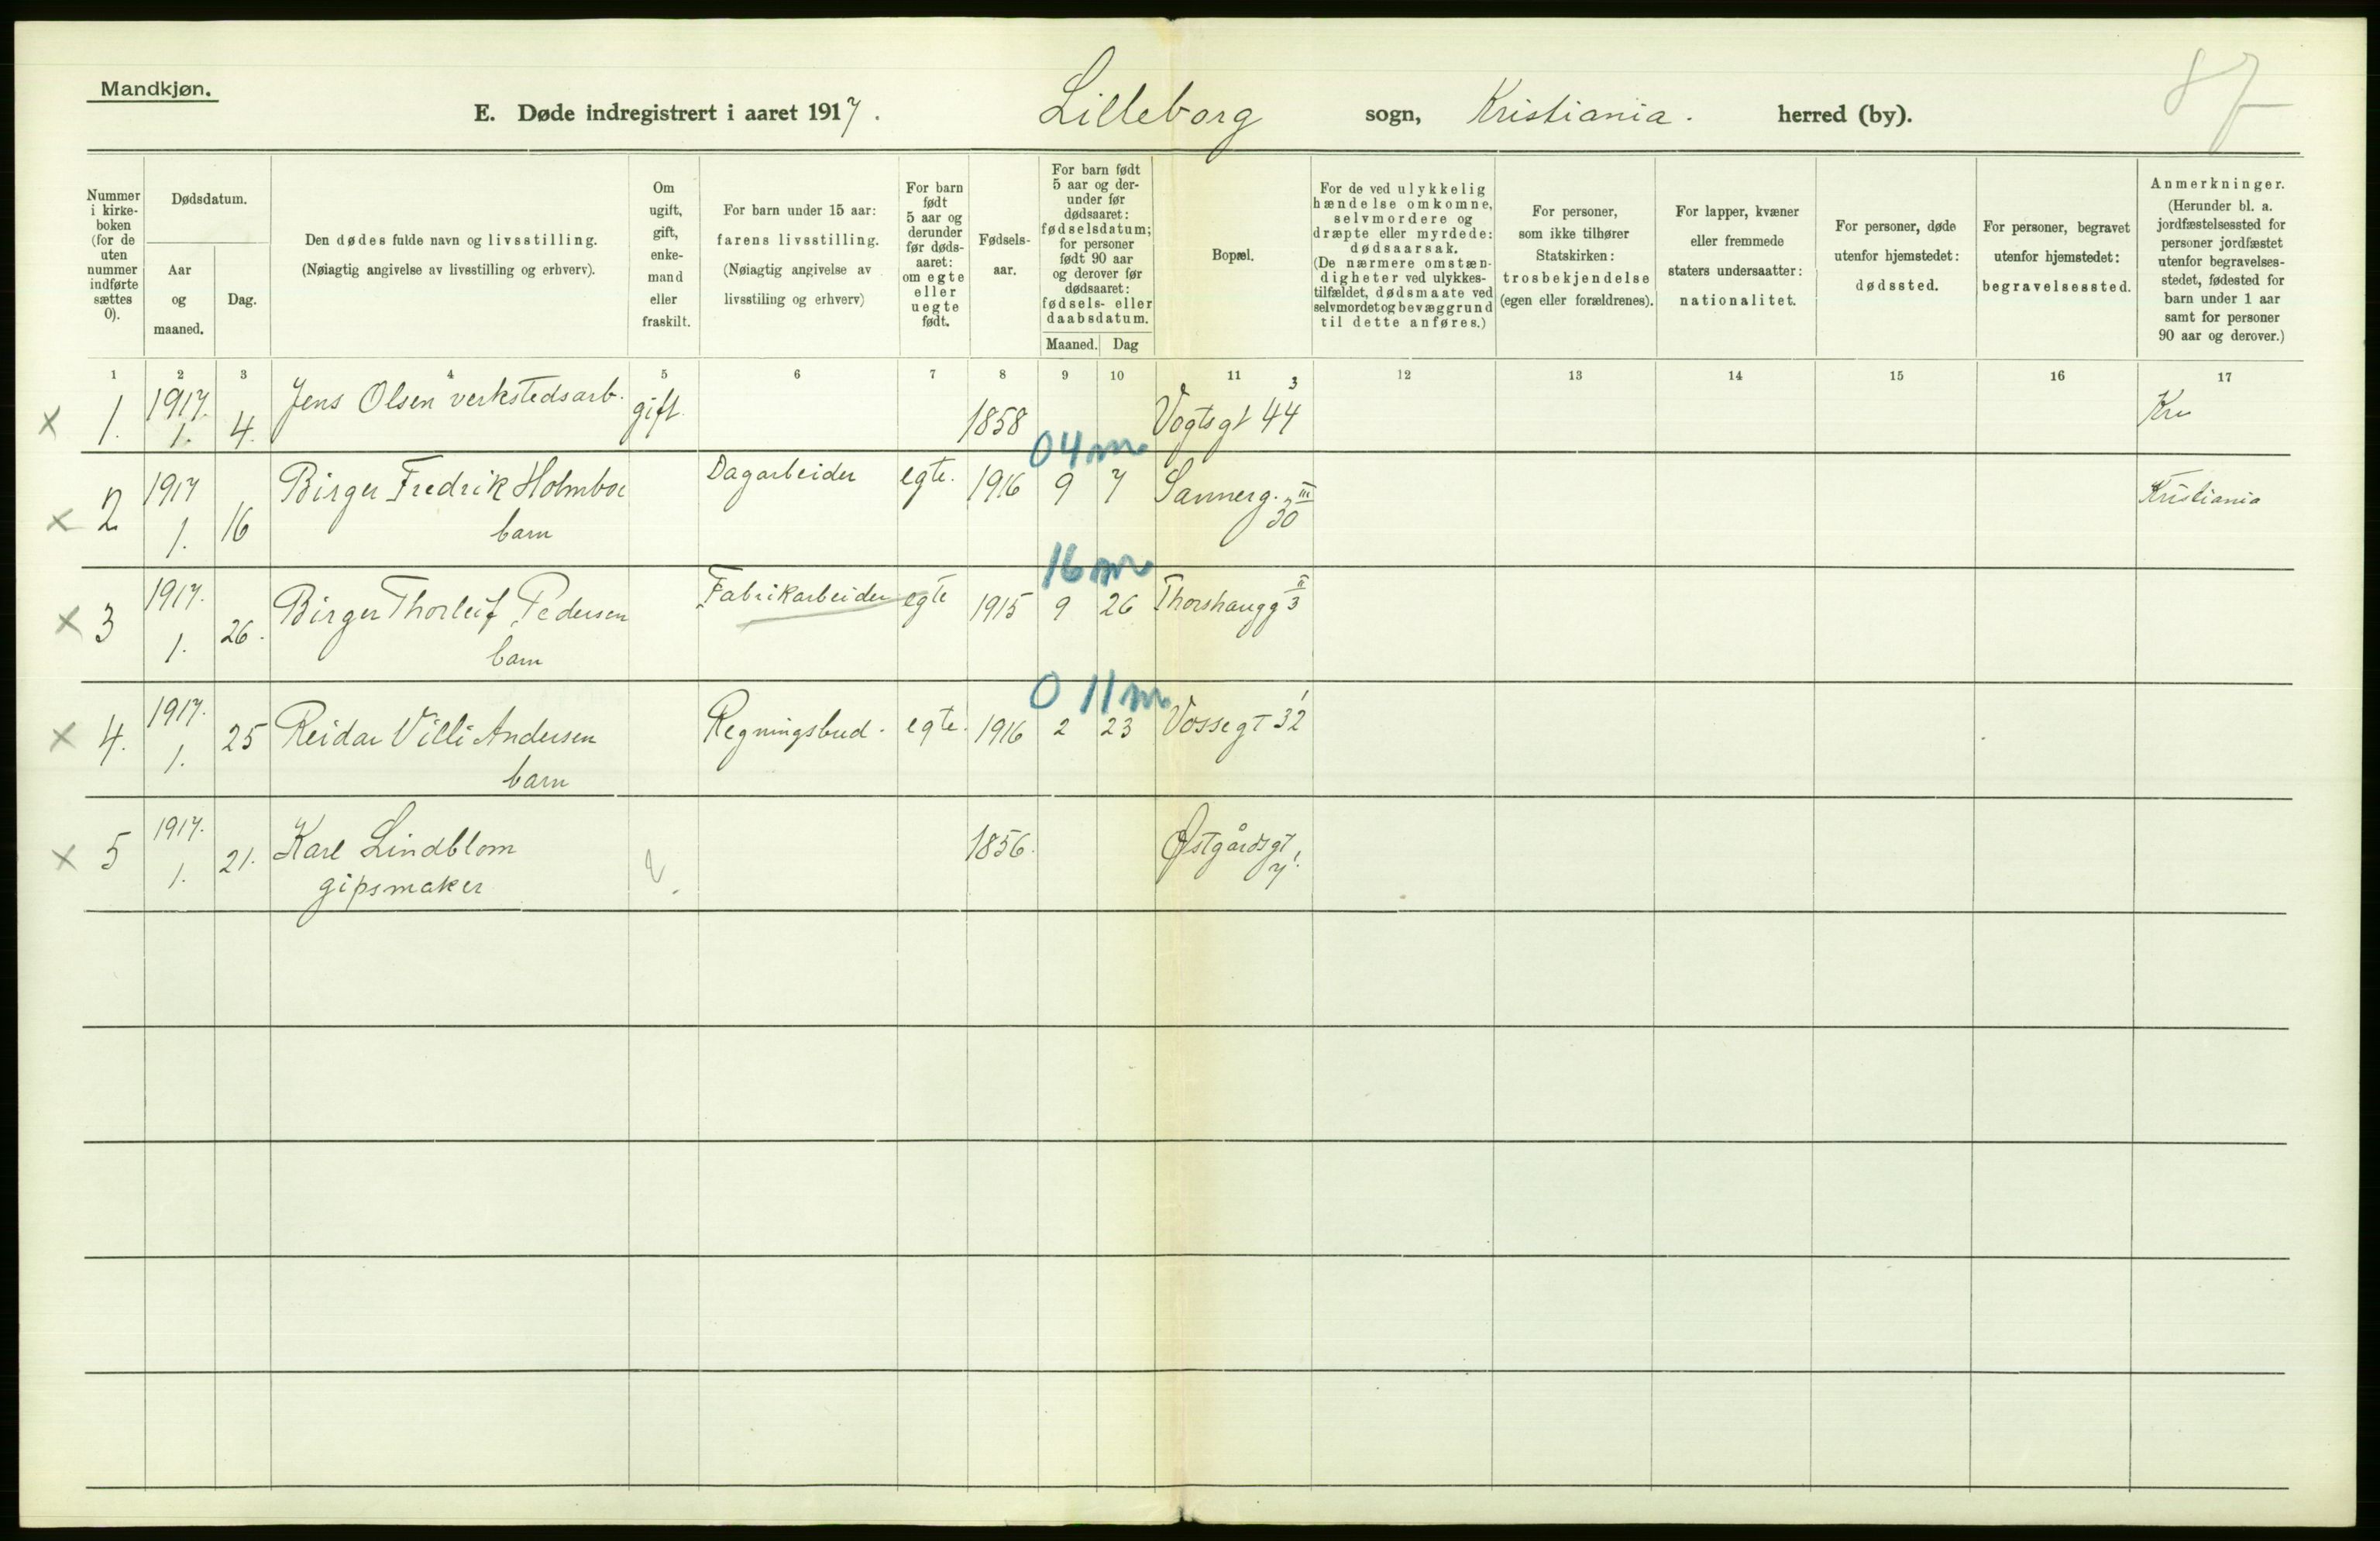 Mandkjøn.
E. Døde indregistrert i aaret 1917. Lilleborg sogn, Kristiania. herred (by).
87
Nummer i kirke-boken (for de uten nummer indførte sættes 0).
Dødsdatum.
Aar og maaned.
Dag.
Den dødes fulde navn og livsstilling.
(Nøiagtig angivelse av livsstilling og erhverv).
Om ugift, gift, enke-mand eller fraskilt.
For barn under 15 aar: farens livsstilling.
(Nøiagtig angivelse av livsstiling og erhverv)
For barn født 5 aar og derunder før døds-aaret: om egte eller uegte født.
Fødsels-aar.
For barn født 5 aar og der-under før dødsaaret: fødselsdatum; for personer født 90 aar og derover før dødsaaret: fødsels- eller daabsdatum.
Maaned. Dag
Bopæl.
For de ved ulykkelig hændelse omkomne, selvmordere og dræpte eller myrdede: dødsaarsak.
(De nærmere omstæn-digheter ved ulykkes-tilfældet, dødsmaate ved selvmordet og bevæggrund til dette anføres.)
For personer, som ikke tilhører Statskirken: trosbekjendelse (egen eller forældrenes).
For lapper, kvæner eller fremmede staters undersaatter: nationalitet.
For personer, døde utenfor hjemstedet: dødssted.
For personer, begravet utenfor hjemstedet: begravelsessted.
Anmerkninger.
(Herunder bl. a. jordfæstelsessted for personer jordfæstet utenfor begravelses-stedet, fødested for barn under 1 aar samt for personer 90 aar og derover.)
1 2 3 4 5 6 7 8 9 10 11 12 13 14 15 16 17
x 1. 1917. 1. 4. Jens Olsen verkstedsarb. gift. 1858 Vogtsgt 44 3
04 m
x 2 1917 1. 16 Birger Fredrik Holmboe barn Dagarbeider egte. 1916 9 7 Sannerg. 30 III Kristiania
16 m
x 3 1917. 1. 26. Birger Thorleif Pedersen barn Fabrikarbeider egte 1915 9 26 Thorshaugg 3 II
0 11 m
x 4. 1917. 1. 25 Reidar Villi Andersen barn Regningsbud. egte. 1916 2 23 Vossegt 32 1
x 5 1917. 1. 21. Karl Lindblom gipsmaker 1856. Østgårdsgt